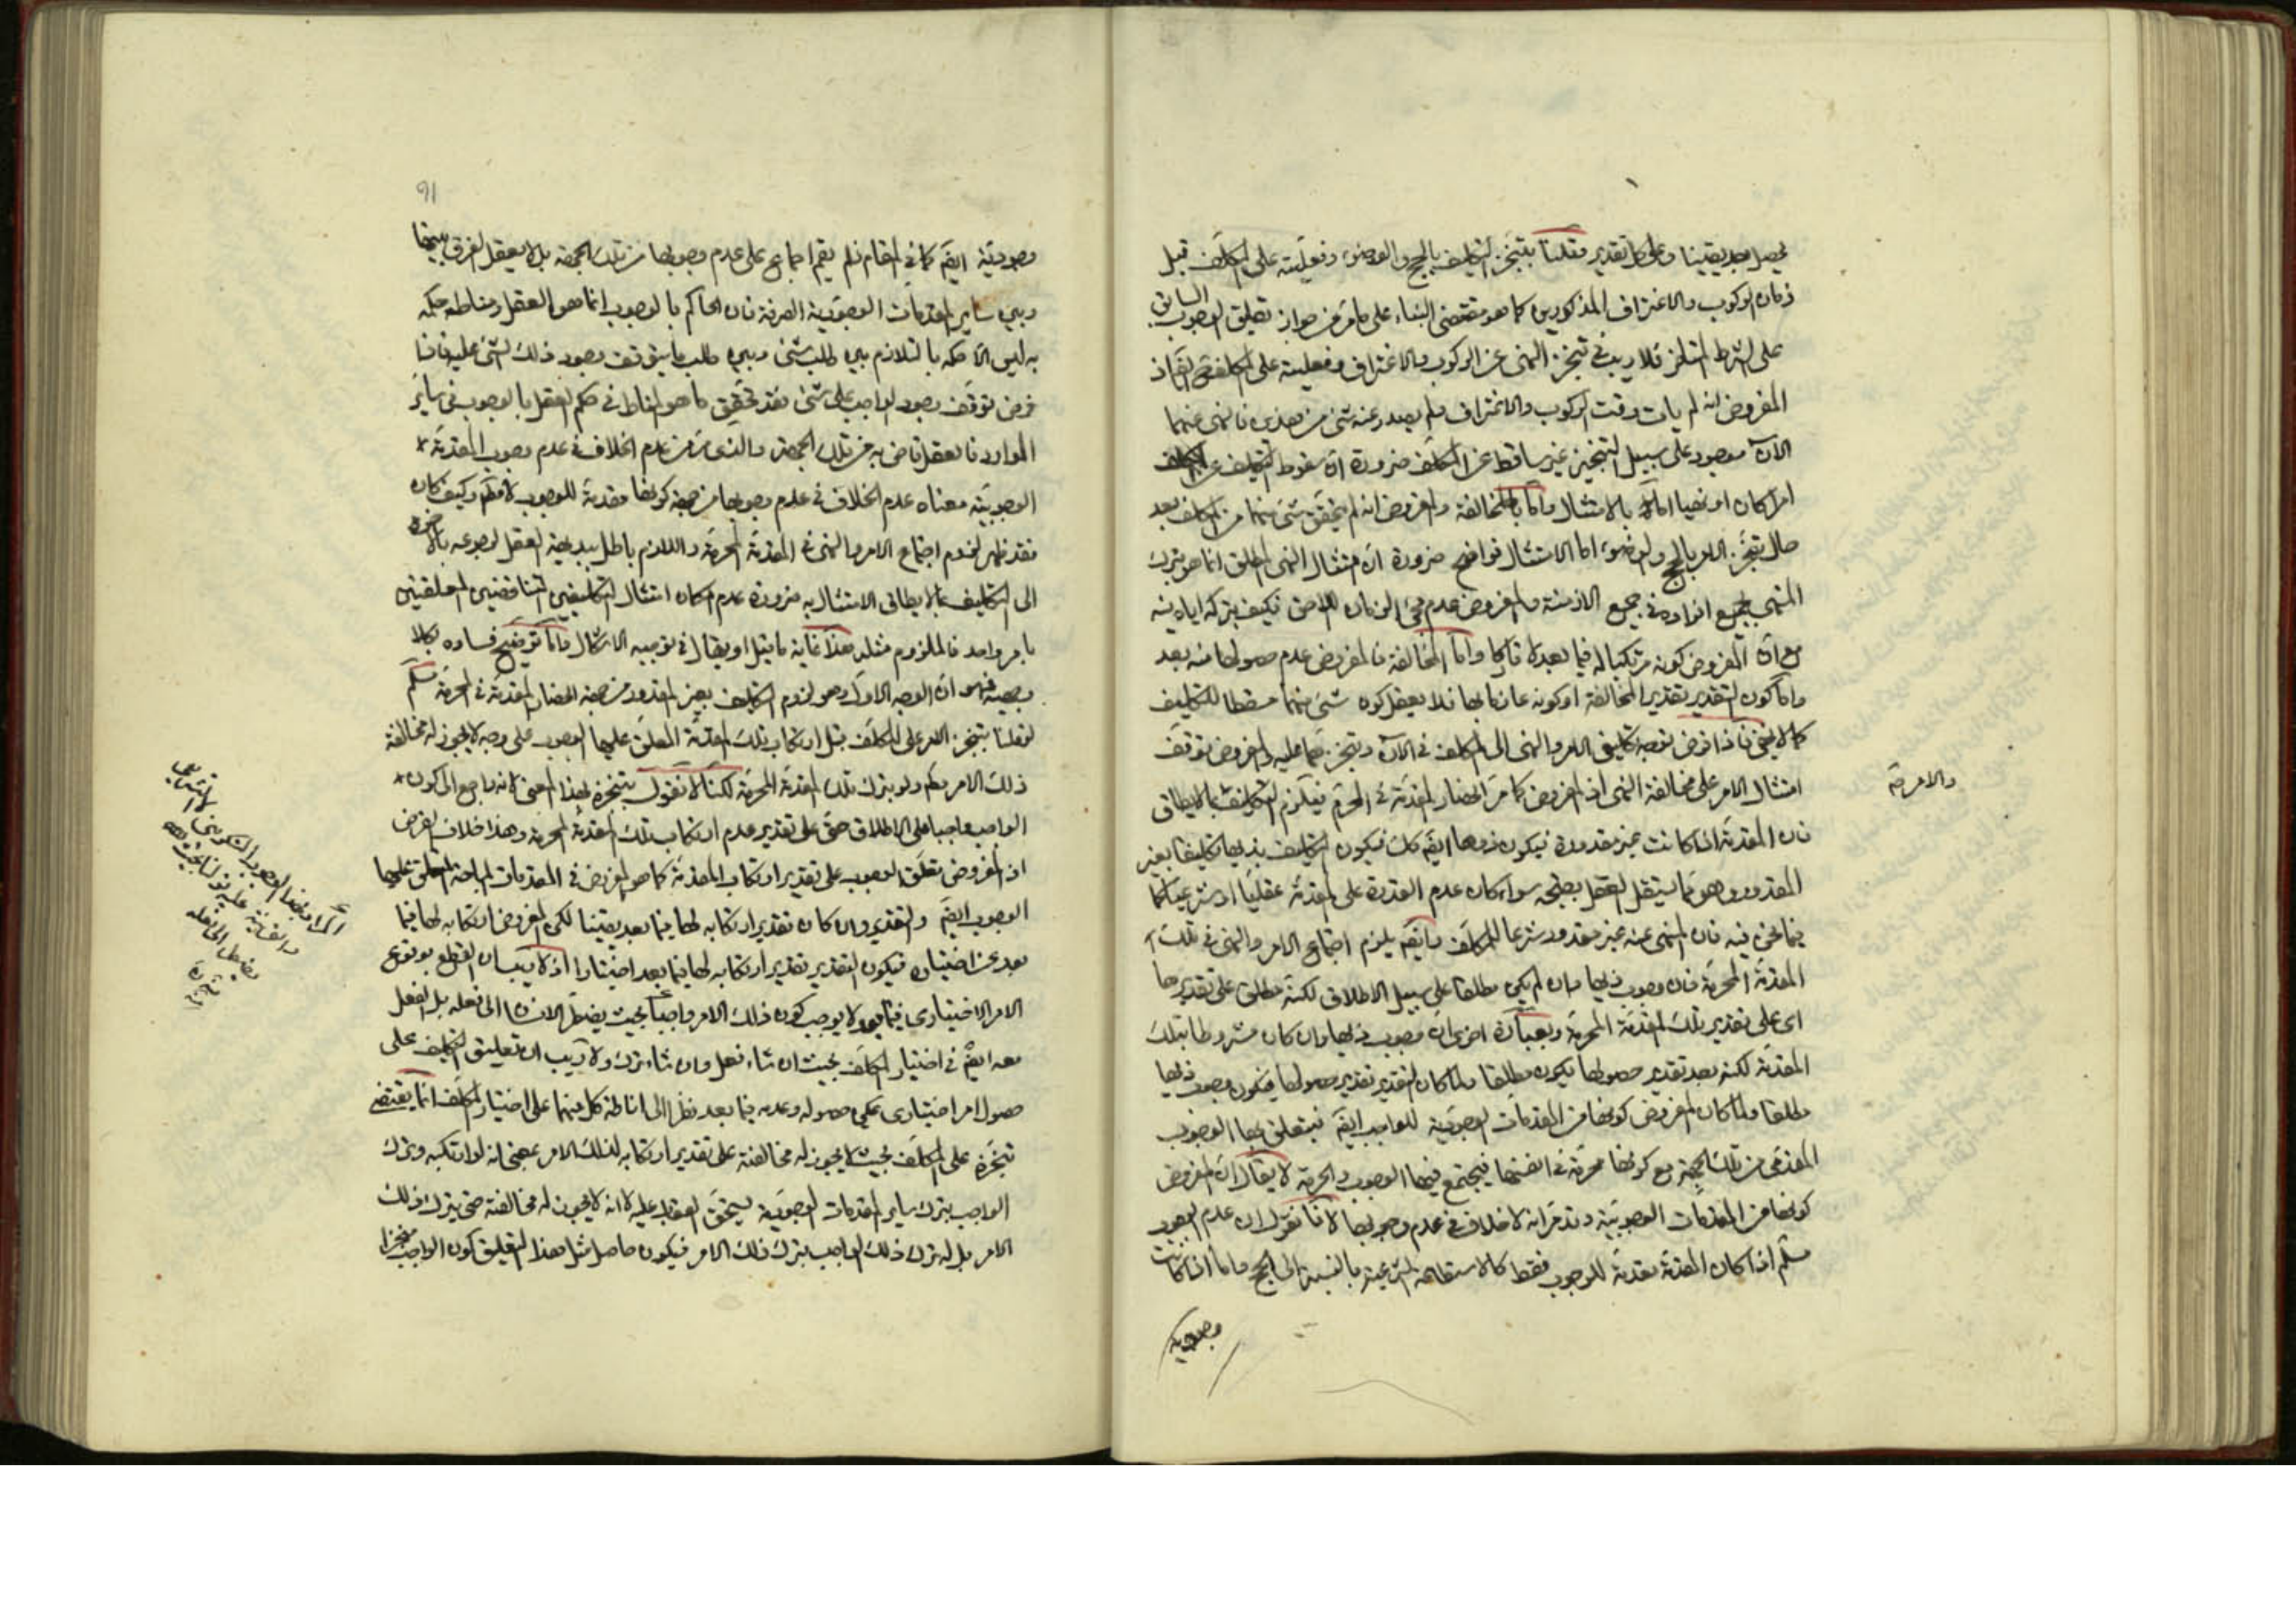 يحصل بعد يقينا وعلى كل تقدير فقلنا بتنجز التكليف بالحج والوضوء وفعليته على المكلف قبل
زمان الركوب والاغتراف المذكورين كما هو مقتضى البناء على ما مر من جواز تعليق الوجوب السابق
على الشرط المتأخر فلا ريب في تنجز النهى عن الركوب والاغتراف وفعليته على المكلف ح اذ
المفروض انه لم يات وقت الركوب والاغتراف ولم يصدر عنه شئ من هذين فالنهى عنهما
الآن موجود على سبيل التنجيز غير ساقط عن المكلف ضرورة ان سقوط التكليف عن المكلف
امرا كان او نهيا اما بالامتثال واما بالمخالفة والمفروض انه لم يتحقق شئ منهما من المكلف بعد
حال تنجز الامر بالحج والوضوء اما الامتثال فواضح ضرورة ان امتثال النهى المطلق انما هو بترك
المنهى بجميع افراده في جميع الازمنة والمفروض عدم مجئ الزمان اللاحق فكيف بتركه اياه فيه
مع ان المفروض كونه مرتكبا له فيما بعد لا تاركا واما المخالفة فالمفروض عدم حصولها منه بعد
واما كون التقدير تقدير المخالفة او كونه عازما بها فلا يعقل كون شئ منهما مسقطا للتكليف
كما لا يخفى فاذا فرض توجه تكليفى الامر والنهى الى المكلف في الآن وتنجزهما عليه والمفروض توقف
امتثال الامر على مخالفة النهى اذ المفروض كما مر انحصار المقدمة في المحرم فيلزم التكليف بما لا يطاق
والامر صة
فان المقدمة اذا كانت غير مقدورة فيكون ذوها ايضا كك فيكون التكليف بذيها تكليفا بغير
المقدور وهو مما يستقل العقل بقبحه سواء كان عدم القدرة على المقدمة عقليا او شرعيا كما
فيما نحن فيه فان المنهى عنه غير مقدور شرعا للمكلف وايضا يلزم اجتماع الامر والنهى في تلك
المقدمة المحرمة فان وجوب ذيها وان لم يكن مطلقا على سبيل الاطلاق لكنه مطلق على تقديرها
اى على تقدير تلك المقدمة المحرمة وبعبارة اخرى ان وجوب ذيها وان كان مشروطا بتلك
المقدمة لكنه بعد تقدير حصولها يكون مطلقا ولما كان التقدير تقدير حصولها فيكون وجوب ذيها
مطلقا ولما كان المفروض كونها من المقدمات الوجودية للواجب ايضا فيتعلق بها الوجوب
المقدمى من تلك الجهة مع كونها محرمة في انفسها فيجتمع فيها الوجوب والحرمة لا يقال ان المفروض
كونها من المقدمات الوجوبية وقد مر انه لا خلاف في عدم وجوبها لانا نقول ان عدم الوجوب
مسلم اذا كان المقدمة مقدمة للوجوب فقط كالاستطاعة الشرعية بالنسبة الى الحج واما اذا كانت
وجودية
91
وجودية ايضا كما في المقام فلم يقم اجماع على عدم وجوبها من تلك الجهة بل لا يعقل الفرق بينها
وبين ساير المقدمات الوجودية الصرفة فان الحاكم بالوجوب انما هو العقل ومناط حكمه
به ليس الا حكمه بالتلازم بين طلب شئ وبين طلب ما يتوقف وجود ذلك الشئ عليه فاذا
فرض توقف وجود الواجب على شئ فقد تحقق ما هو المناط في حكم العقل بالوجوب في ساير
الموارد فالعقل قاض به من تلك الجهة والذى مر من عدم الخلاف في عدم وجوب المقدمة
الوجوبية معناه عدم الخلاف في عدم وجوبها من جهة كونها مقدمة للوجوب لا مطم وكيف كان
فقد ظهر لزوم اجتماع الامر والنهى في المقدمة المحرمة واللازم باطل ببديهة العقل لرجوعه بالاخرة
الى التكليف بما لا يطاق الامتثال به ضرورة عدم امكان امتثال التكليفين المتناقضين المتعلقين
بامر واحد فالملزوم مثله هذا غاية ما قيل او يقال في توجيه الاشكال واما توضيح فساده بكلا
وجهيه فهو ان الوجه الاول وهو لزوم التكليف بغير المقدور من جهة انحصار المقدمة في المحرمة مسلم
لو قلنا بتنجز الامر على المكلف قبل ارتكاب تلك المقدمة المعلق عليها الوجوب على وجه لا يجوز له مخالفة
ذلك الامر مطم ولو بترك تلك المقدمة المحرمة لكنا لا نقول بتنجزه بهذا المعنى لانه راجع الى كون
الواجب واجبا على الاطلاق حتى على تقدير عدم ارتكاب تلك المقدمة المحرمة وهذا خلاف الفرض
اذ المفروض تعلق الوجوب على تقدير ارتكاب المقدمة كما هو المفروض في المقدمات المباحة المعلق عليها
الوجوب ايضا والتقدير وان كان تقدير ارتكابه لها فيما بعد يقينا لكن المفروض ارتكابه لها فيما
بعد عن اختياره فيكون التقدير تقدير ارتكابه لها فيما بعد اختيارا اذ لا ريب ان القطع بوقوع
الامر الاختيارى فيما بعد لا يوجب كون ذلك الامر واجبا بحيث يضطر الانسان الى فعله بل الفعل
معه ايضا في اختيار المكلف بحيث ان شاء فعل وان شاء ترك ولا ريب ان تعليق التكليف على
حصول امر اختيارى يمكن حصوله وعدمه فيما بعد نظرا الى اناطة كل منهما على اختيار المكلف انما يقتضى
تنجزه على المكلف بحيث لا يجوز له مخالفته على تقدير ارتكابه لذلك الامر بمعنى انه لو ارتكبه وترك
الواجب بترك ساير المقدمات الوجودية يستحق العقاب عليه لا انه لا يجوز له مخالفته حتى بترك ذلك
الامر بل له ترك ذلك الواجب بترك ذلك الامر فيكون حاصل مثل هذا التعليق كون الواجب منجزا